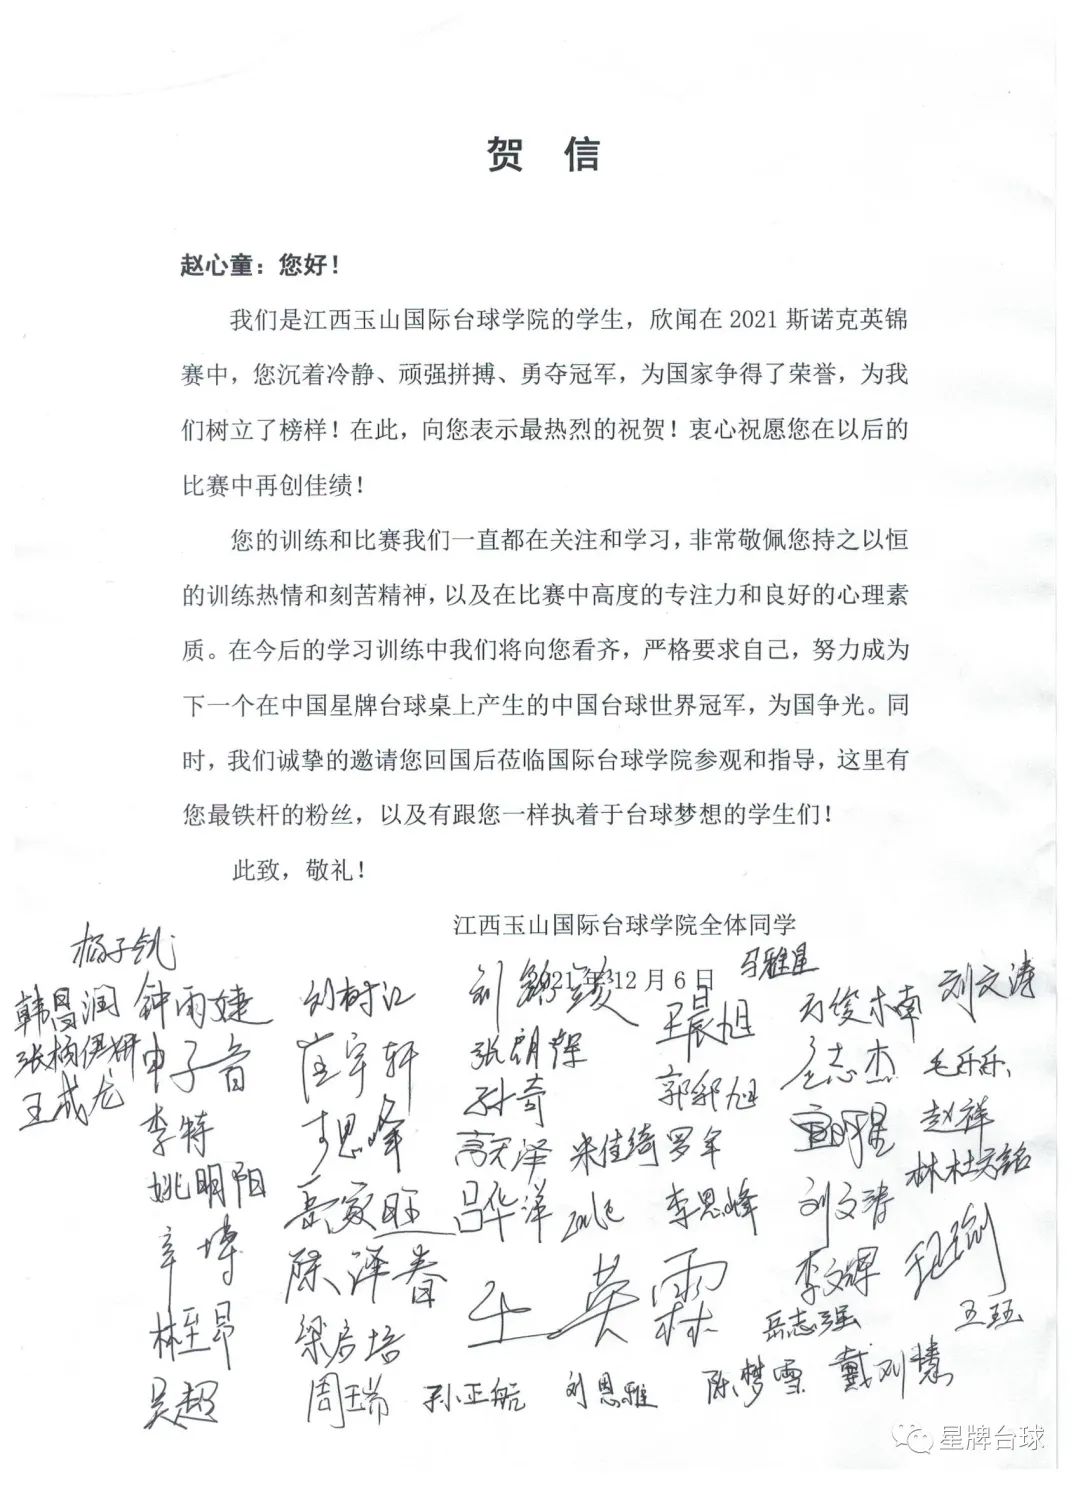 贺 信
赵心童：您好！
我们是江西玉山国际台球学院的学生，欣闻在 2021 斯诺克英锦
赛中，您沉着冷静、顽强拼搏、勇夺冠军，为国家争得了荣誉，为我
们树立了榜样！在此，向您表示最热烈的祝贺！衷心祝愿您在以后的
比赛中再创佳绩！
您的训练和比赛我们一直都在关注和学习，非常敬佩您持之以恒
的训练热情和刻苦精神，以及在比赛中高度的专注力和良好的心理素
质。在今后的学习训练中我们将向您看齐，严格要求自己，努力成为
下一个在中国星牌台球桌上产生的中国台球世界冠军，为国争光。同
时，我们诚挚的邀请您回国后莅临国际台球学院参观和指导，这里有
您最铁杆的粉丝，以及有跟您一样执着于台球梦想的学生们！
此致，敬礼！
江西玉山国际台球学院全体同学
2021 年 12 月 6 日
马雅星
韩昌润 钟雨婕 刘树江 王晨旭 刘文涛
申子音 张朗
王成龙 孙奇 郭郅旭 志杰 毛乐乐
李特 思峰 高天泽 朱佳绮 罗军 赵祥
姚明阳 吕华洋 李思峰 刘文涛 林杜文铭
辛博 陈泽春 李文辉
林至昂 梁启培 王英霖 岳志强 王珏
吴超 周瑞 孙正航 刘恩雅 陈梦雪 戴刘慧
星牌台球